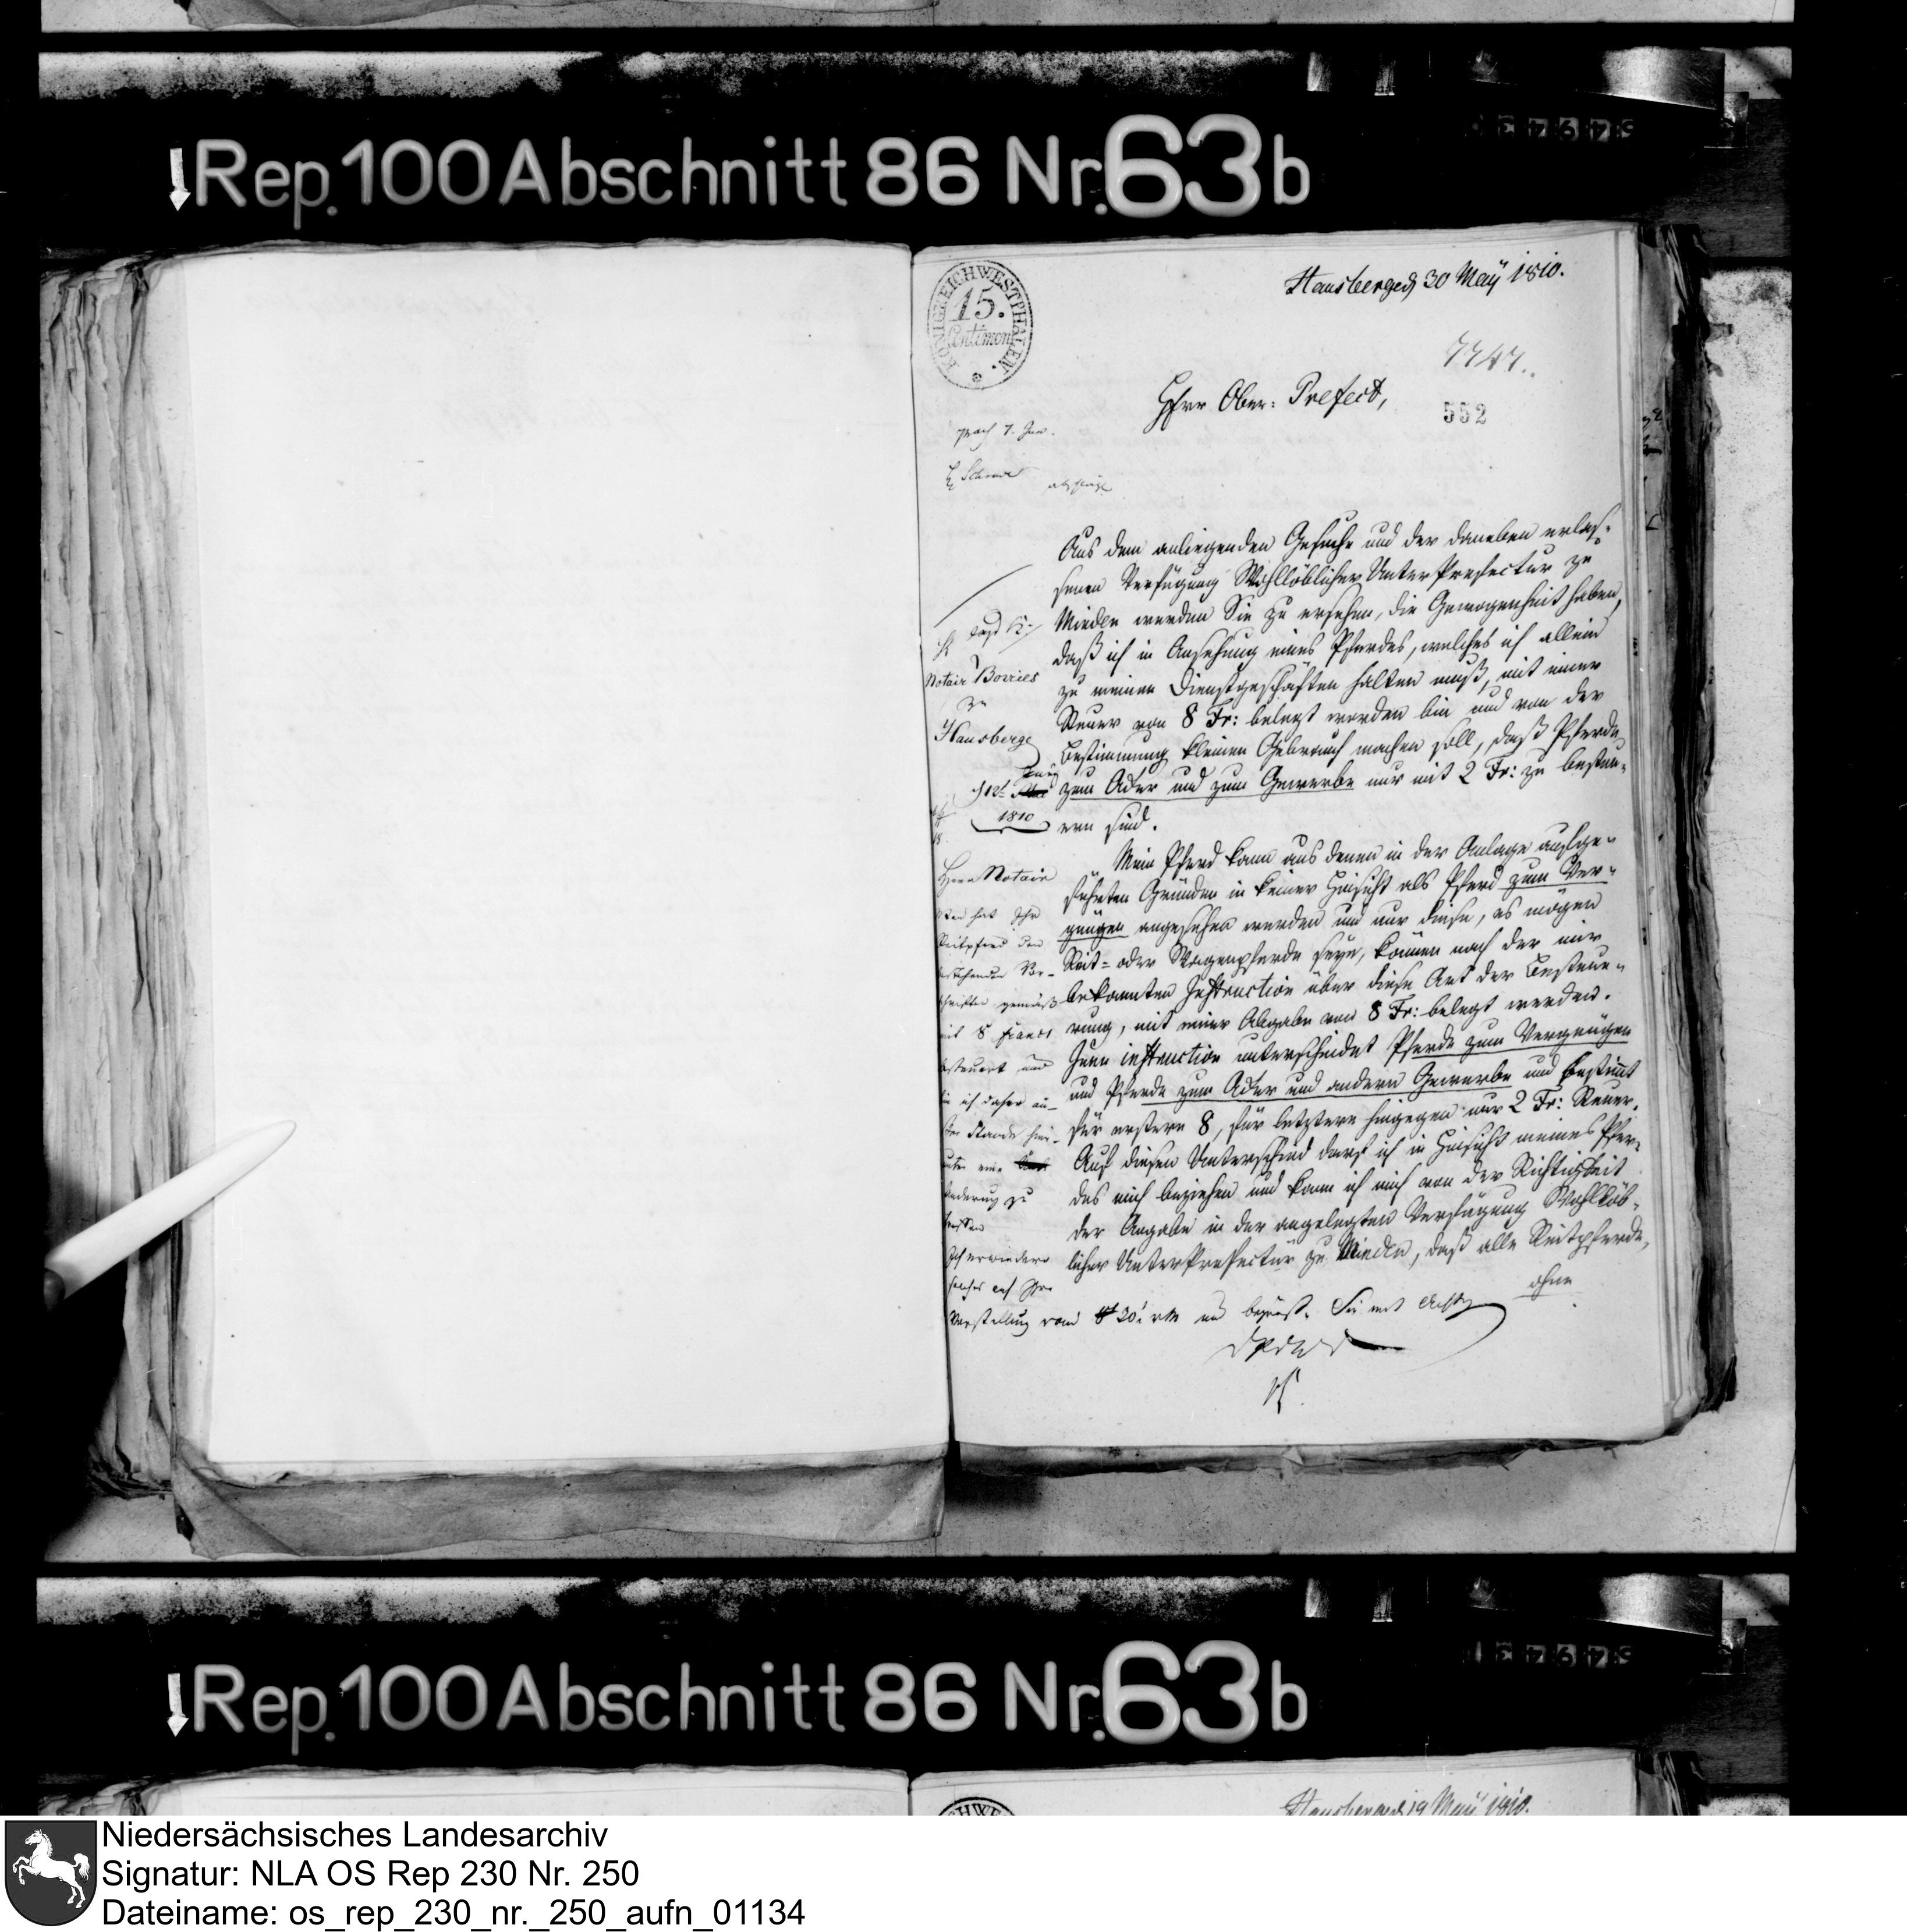 Rep. 100 Abschnitt 86 Nr. 63b
KÖNIGREICH WESTPHALEN.
15.
Centimen
Hausberge d 30 May 1810.
7747.
Herr Ober-Prefect,
552
Aus dem anliegenden Gesuche und der daneben erlas-
senen Verfügung Wohllöblicher UnterPrefectur zu
Minden werden Sie zu ersehen, die Gewogenheit haben,
daß ich in Ansehung eines Pferdes, welches ich allein
zu meinen Dienstgeschäften halten muß, mit einer
Steuer von 8 Fr: belegt worden bin und von der
Bestimmung keinen Gebrauch machen soll, daß Pferde
zum Acker und zum Gewerbe nur mit 2 Fr: zu besteu-
ren sind.
Mein Pferd kann aus denen in der Anlage aufge-
führten Gründen in keiner Hinsicht als Pferd zum Ver-
gnügen angesehen werden und nur diese, es mögen
Reit- oder Wagenpferde seyn, können nach der mir
bekannten Instruction über diese Art der Besteue-
rung, mit einer Abgabe von 8 Fr: belegt werden.
Jene instruction unterscheidet Pferde zum Vergnügen
und Pferde zum Acker und andern Gewerbe und bestimt
für erstere 8, für letztere hingegen nur 2 Fr: Steuer.
Auf diesen Unterschied darf ich in Hinsicht meines Pfer-
des mich beziehen und kann ich mich von der Richtigkeit
der Angabe in der angelegten Verfügung Wohllöb-
licher UnterPrefectur zu Minden, daß alle Reitpferde,
ohne
Notair Borries
zu
Hausberge
1810
Herr Notair
Man hat Ihr
Reitpferd den
bestehenden Vor-
schriften gemäß
mit 8 Francs
besteuert und
bin ich daher au-
ßer Stande hier-
unter eine
Änderung zu
treffen
Ich erwiedere
solches auf Ihre
Vorstellung vom 30
Rep. 100 Abschnitt 86 Nr. 63b
Hausberge d 19 May 1810.
Niedersächsisches Landesarchiv
Signatur: NLA OS Rep 230 Nr. 250
Dateiname: os_rep_230_nr._250_aufn_01134